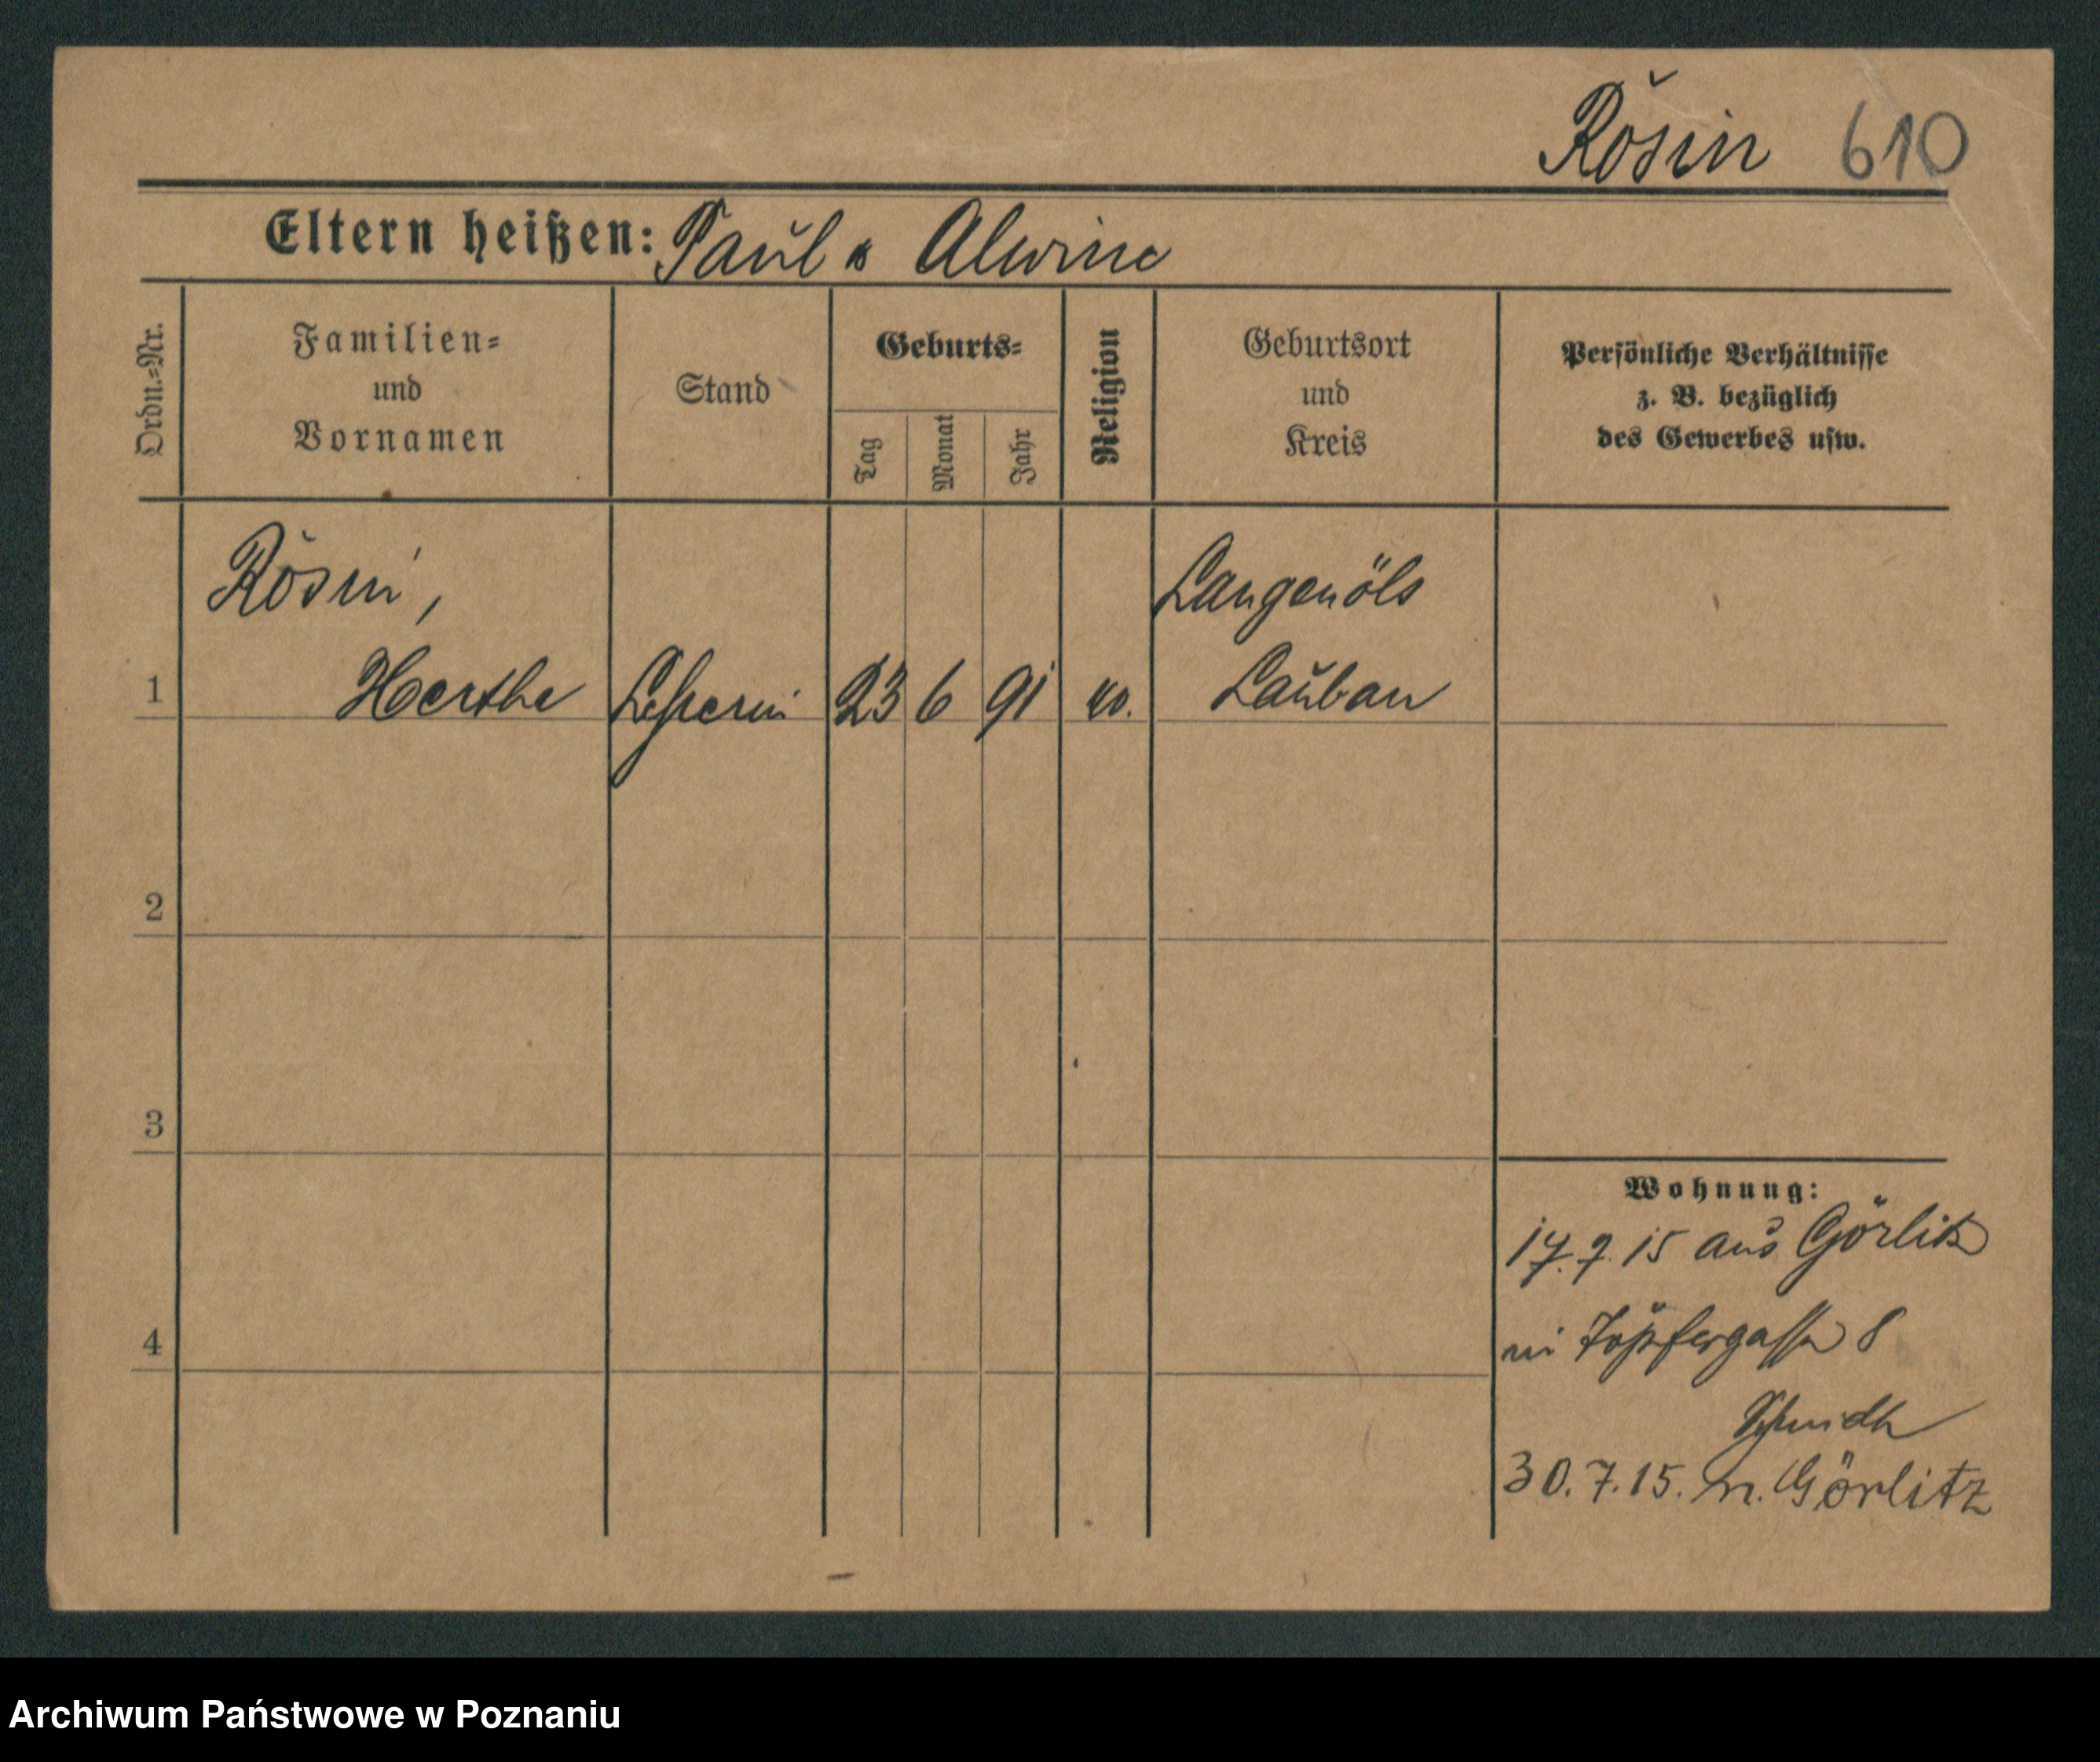 Rösin 610
Eltern heißen: Paul & Alwine
Ordn.=Nr.
Familien=
und
Vornamen
Stand
Geburts=
Tag
Monat
Jahr
Religion
Geburtsort
und
Kreis
Persönliche Verhältnisse
z. B. bezüglich
des Gewerbes usw.
Rösin,
Langenöls
1 Herthe 23 6 91 Lauban
2
3
4
Wohnung:
17.7.15 aus Görlitz
in Töpfergasse 8
Schmidt
30.7.15. n. Görlitz
Archiwum Państwowe w Poznaniu